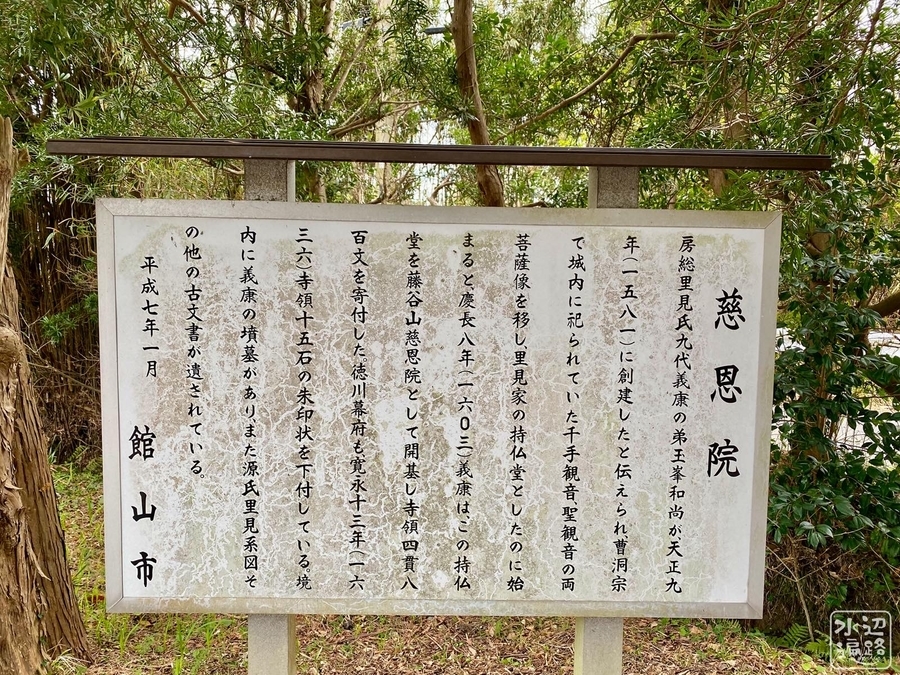 慈恩院
房総里見氏九代義康の弟玉峯和尚が天正九
年(一五八一)に創建したと伝えられ、曹洞宗
で城内に祀られていた千手観音、聖観音の両
菩薩像を移し里見家の持仏堂としたのに始
まると、慶長八年(一六〇三)義康は、この持仏
堂を藤谷山慈恩院として開基し寺領四貫八
百文を寄付した。徳川幕府も、寛永十三年(一六
三六)寺領十五石の朱印状を下付している。境
内に義康の墳墓がありまた源氏里見系図そ
の他の古文書が遺されている。
平成七年一月
館山市
水辺遍路